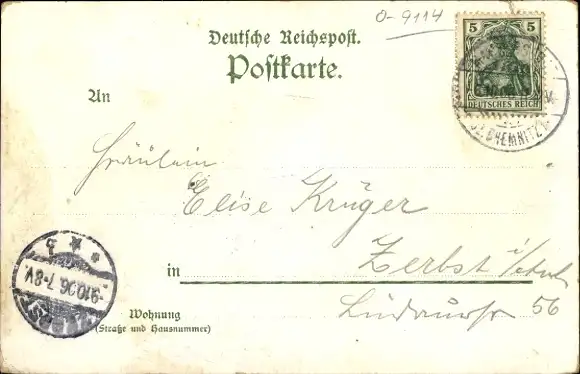 0-9114
Deutsche Reichspost.
Postkarte.
5 5
DEUTSCHES REICH
CHEMNITZ
An
Fräulein
Elise Krüger
in Zerbst i/Anh
56
-9.10.06.7-8V.
Wohnung
(Straße und Hausnummer)